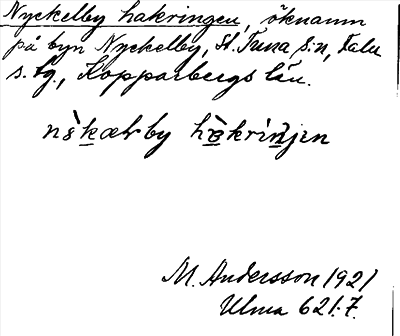 Nyckelby hakringen, öknamn
på byn Nyckelby, St. Tuna s:n, Falu
s. fg., Kopparbergs län.
M. Andersson 1921
Ulma 621:7.